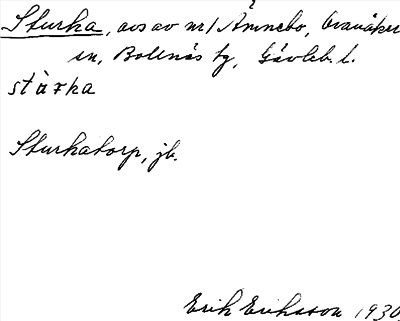 Sturka, avs av nr 1 Ämnebo, Ovanåker
sn, Bollnäs tg, Gävleb. l.
stàrka
Sturkatorp, jb.
Erik Eriksson 1930.